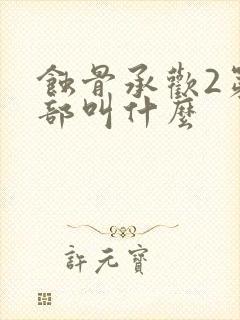 蝕骨承歡2第
部叫什麼
許元寶